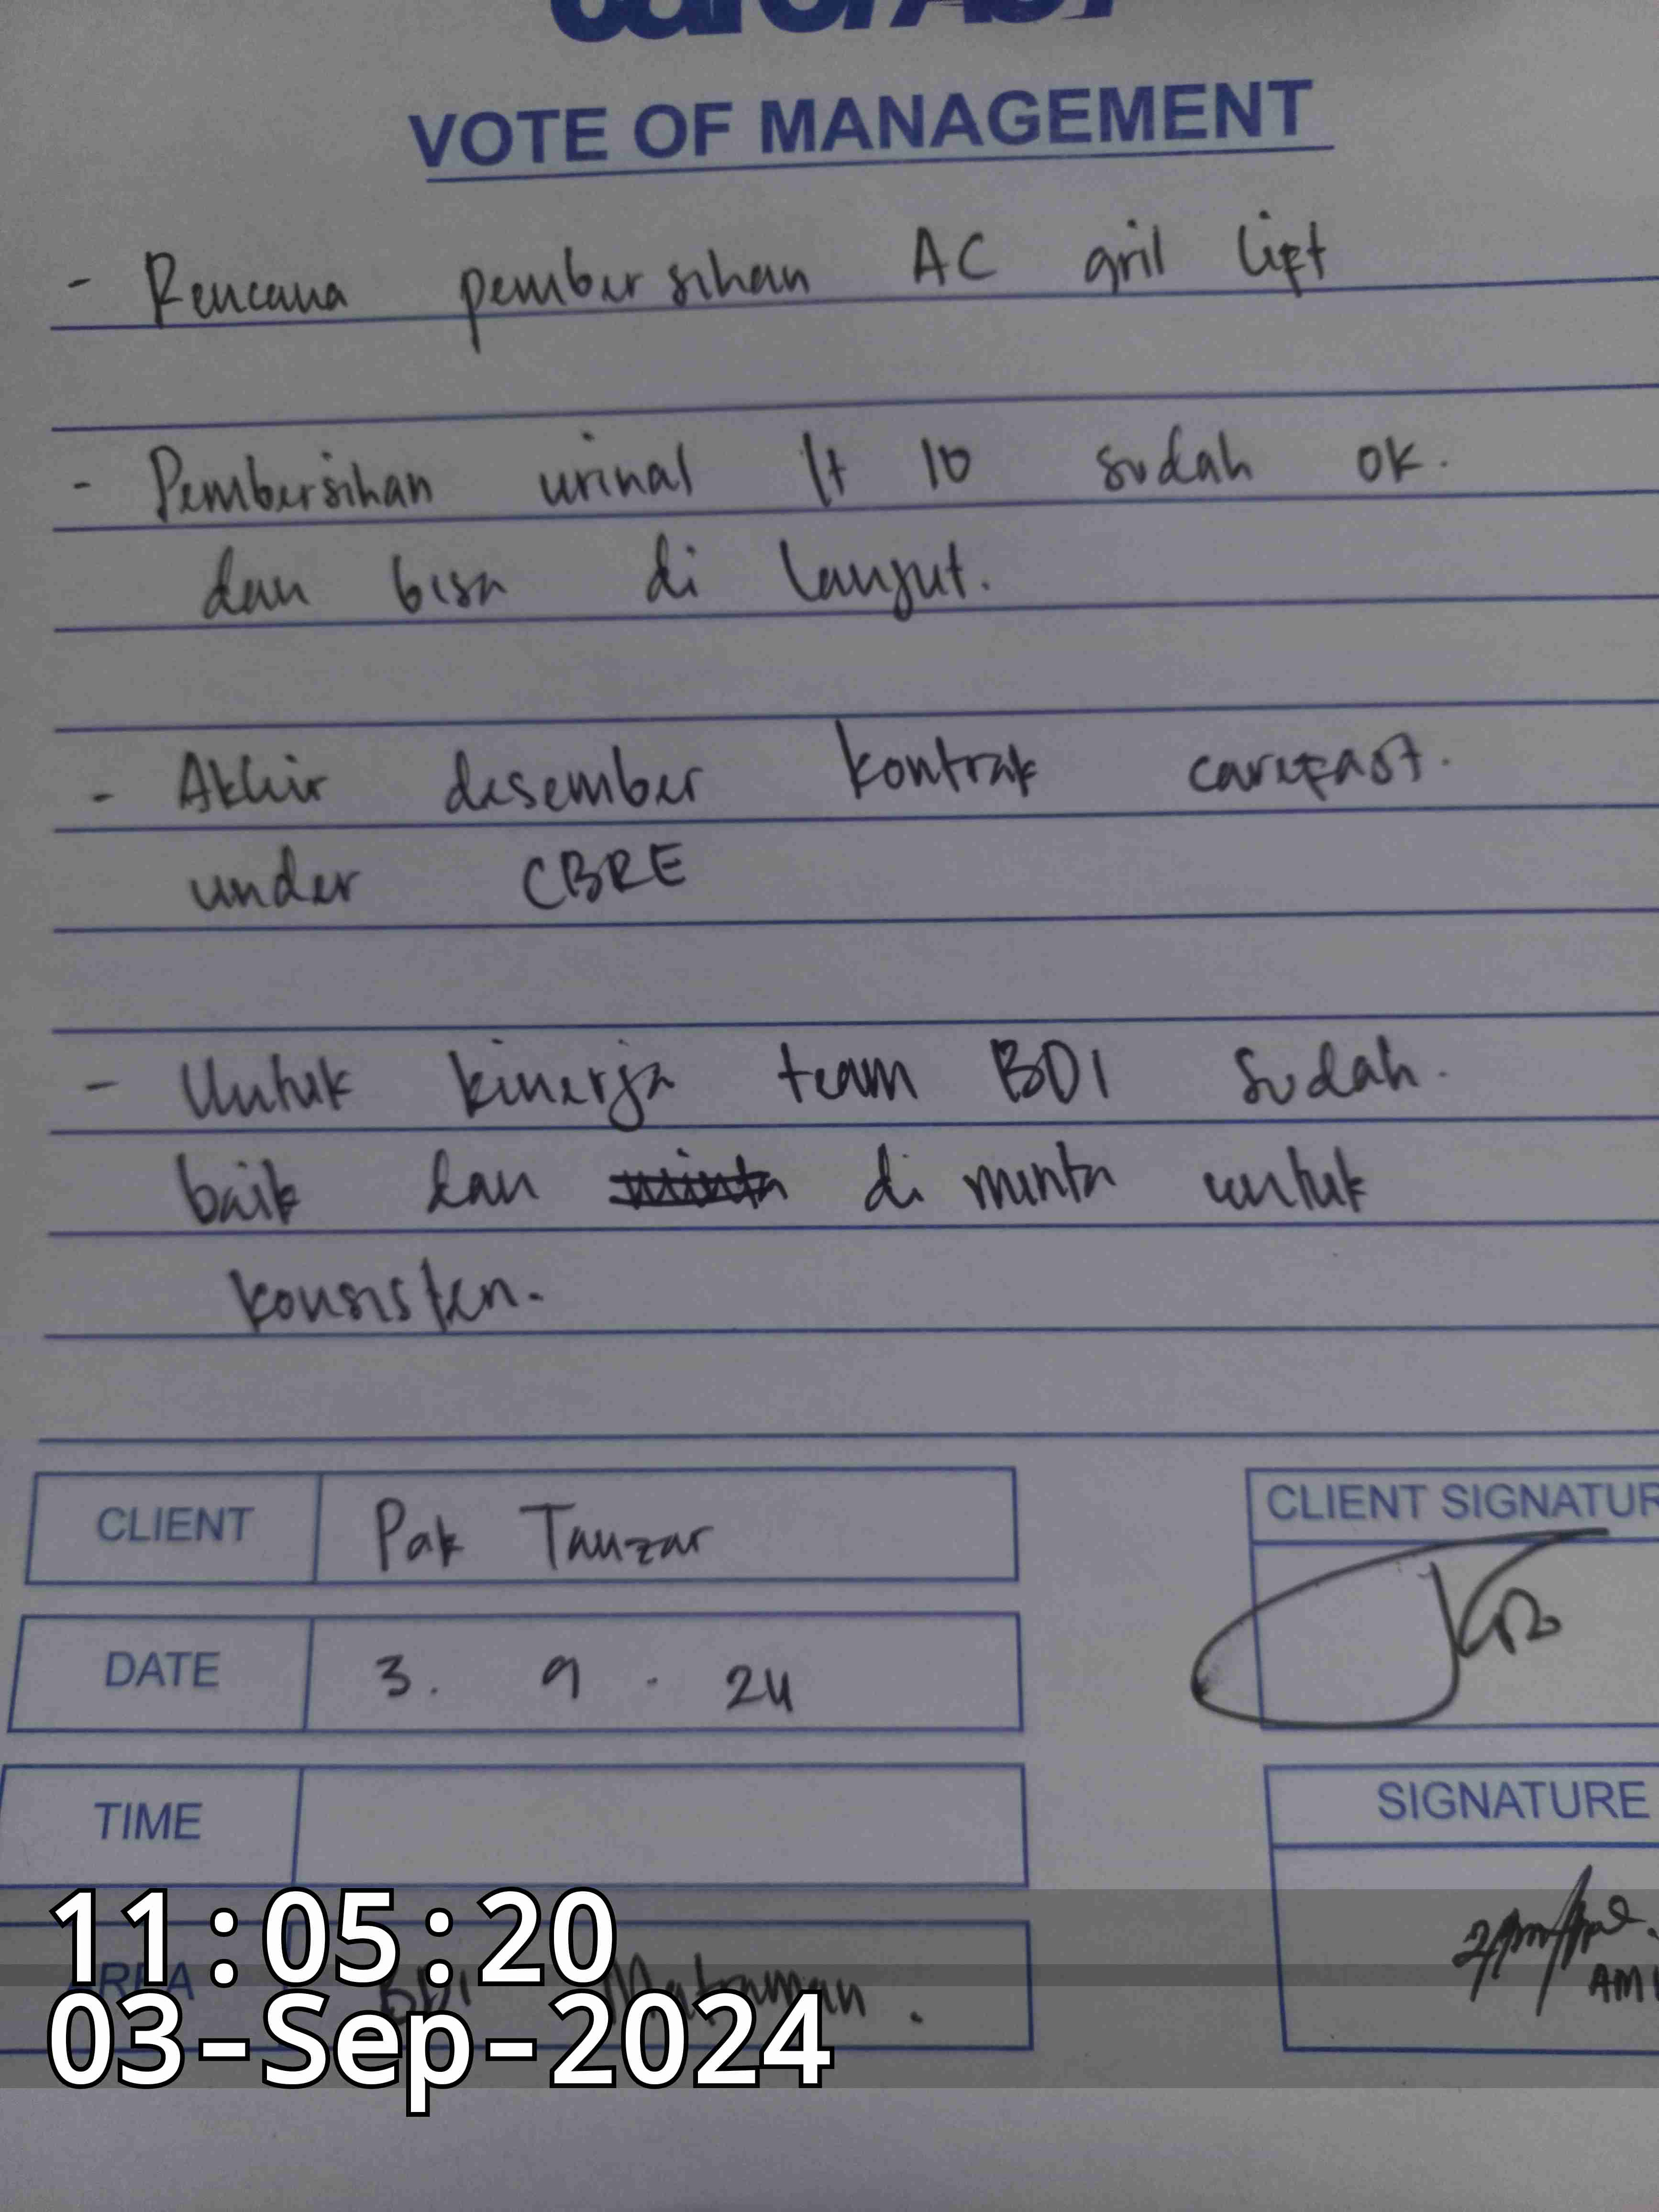 VOTE OF MANAGEMENT
- Rencana pembersihan AC gril lift
- Pembersihan urinal lt 10 sudah ok.
dan bisa di lanjut.
- Akhir desember kontrak carefast.
under CBRE
- Untuk kinerja team BDI sudah.
baik dan minta di minta untuk
konsisten.
CLIENT Pak Tauzar
CLIENT SIGNATUR
DATE 3. 9 . 24
TIME
SIGNATURE
11:05:20
AREA BDI Matraman.
03-Sep-2024